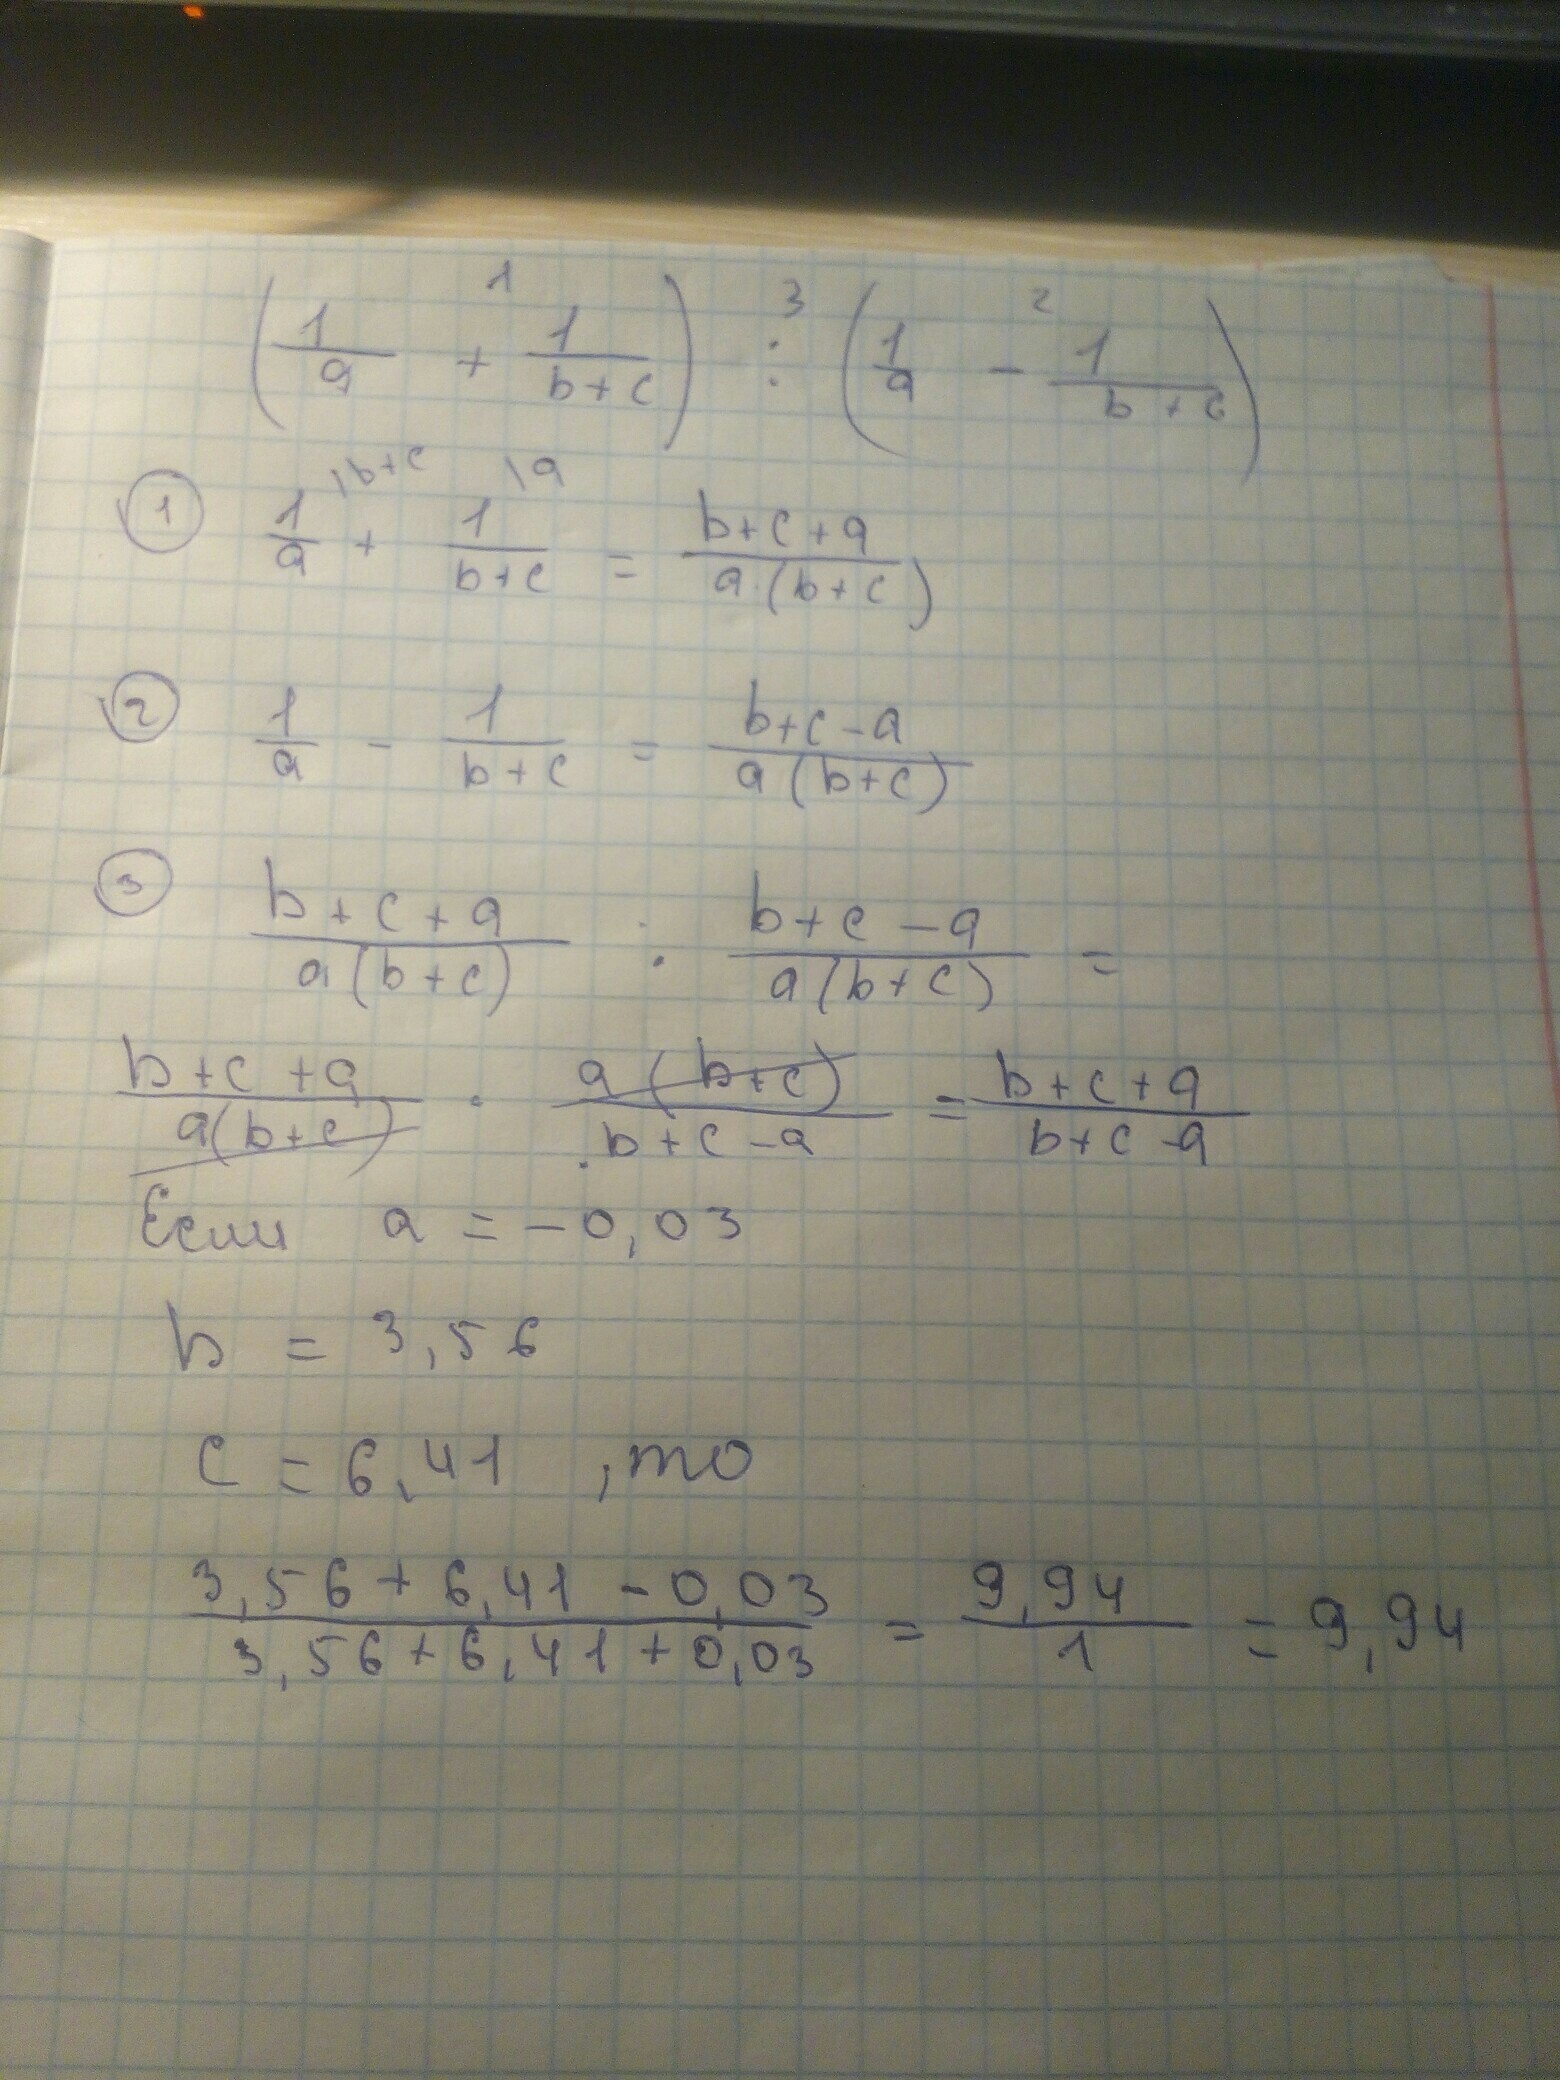 (1/a + 1/(b+c)) : (1/a - 1/(b+c))
1 3 2
① 1/a \b+c + 1/(b+c) \a = (b+c+a)/(a·(b+c))
② 1/a - 1/(b+c) = (b+c-a)/(a(b+c))
③ (b+c+a)/(a(b+c)) : (b+c-a)/(a(b+c)) =
(b+c+a)/(a(b+c)) · (a(b+c))/(b+c-a) = (b+c+a)/(b+c-a)
Если a = -0,03
b = 3,56
c = 6,41 , то
(3,56+6,41-0,03)/(3,56+6,41+0,03) = 9,94/1 = 9,94